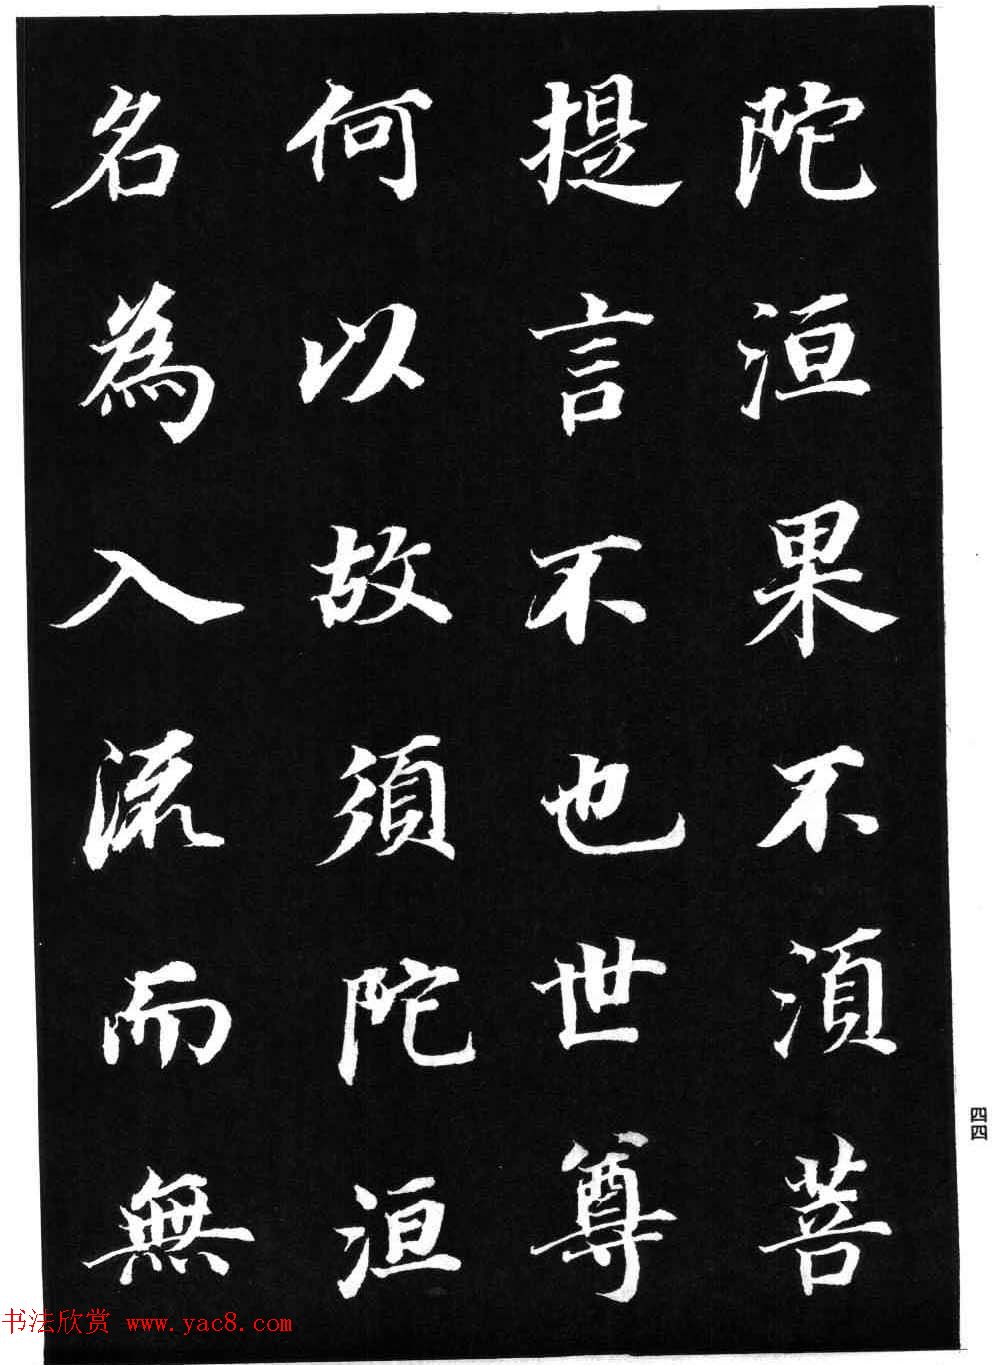 陀洹果不須菩
提言不也世尊
何以故須陀洹
名為入流而無
四四
书法欣赏 www.yac8.com